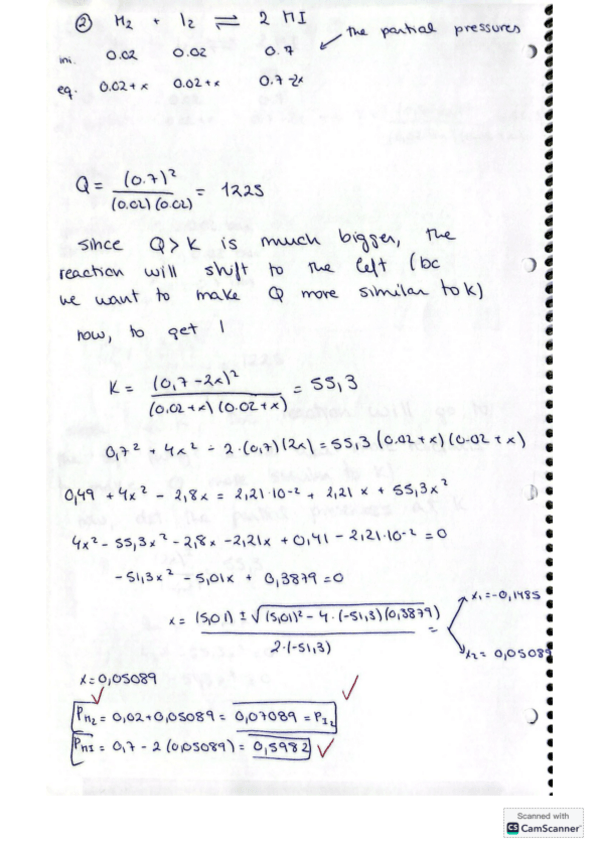 ② H₂ + I₂ ⇌ 2 HI
the partial pressures
ini. 0.02 0.02 0.7
eq. 0.02+x 0.02+x 0.7-2x
Q = (0.7)² / (0.02)(0.02) = 1225
since Q>K is much bigger, the
reaction will shift to the left (bc
we want to make Q more similar to K)
now, to get |
K = (0,7-2x)² / (0.02+x)(0.02+x) = 55,3
0,7² + 4x² - 2·(0,7)(2x) = 55,3 (0.02+x)(0.02+x)
0,49 + 4x² - 2,8x = 2,21·10⁻² + 2,21x + 55,3x²
4x² - 55,3x² - 2,8x - 2,21x + 0,41 - 2,21·10⁻² = 0
-51,3x² - 5,01x + 0,3879 = 0
x = (5,01) ± √(5,01)² - 4·(-51,3)(0,3879) / 2·(-51,3) =
x₁ = -0,1485
x₂ = 0,05089
x = 0,05089
P_H₂ = 0,02 + 0,05089 = 0,07089 = P_I₂
P_HI = 0,7 - 2(0,05089) = 0,5982
Scanned with
CS CamScanner